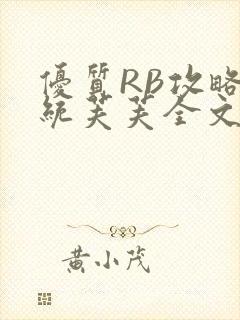 優質RB攻略
統芙芙全文
黃小茂